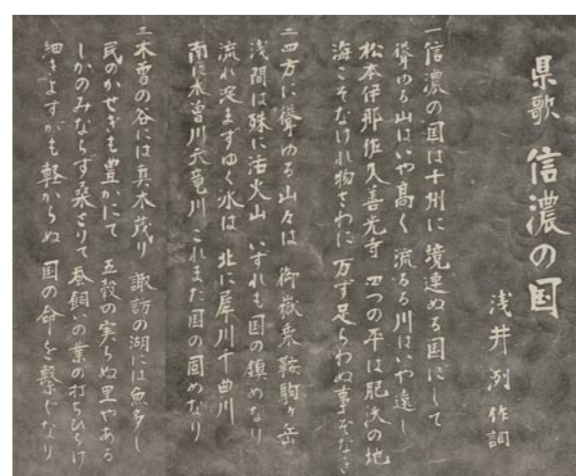 県歌 信濃の国
浅井洌 作詞
一 信濃の国は十州に 境連ぬる国にして
聳ゆる山はいや高く 流るる川はいや遠し
松本伊那佐久善光寺 四つの平は肥沃の地
海こそなけれ物さわに 万ず足らわぬ事ぞなき
二 四方に聳ゆる山々は 御嶽乗鞍駒ヶ岳
浅間は殊に活火山 いずれも国の鎮めなり
流れ淀まずゆく水は 北に犀川千曲川
南に木曽川天竜川 これまた国の固めなり
三 木曽の谷には真木茂り 諏訪の湖には魚多し
民のかせぎも豊かにて 五穀の実らぬ里やある
しかのみならず桑とりて 蚕飼いの業の打ちひらけ
細きよすがも軽からぬ 国の命を繋ぐなり